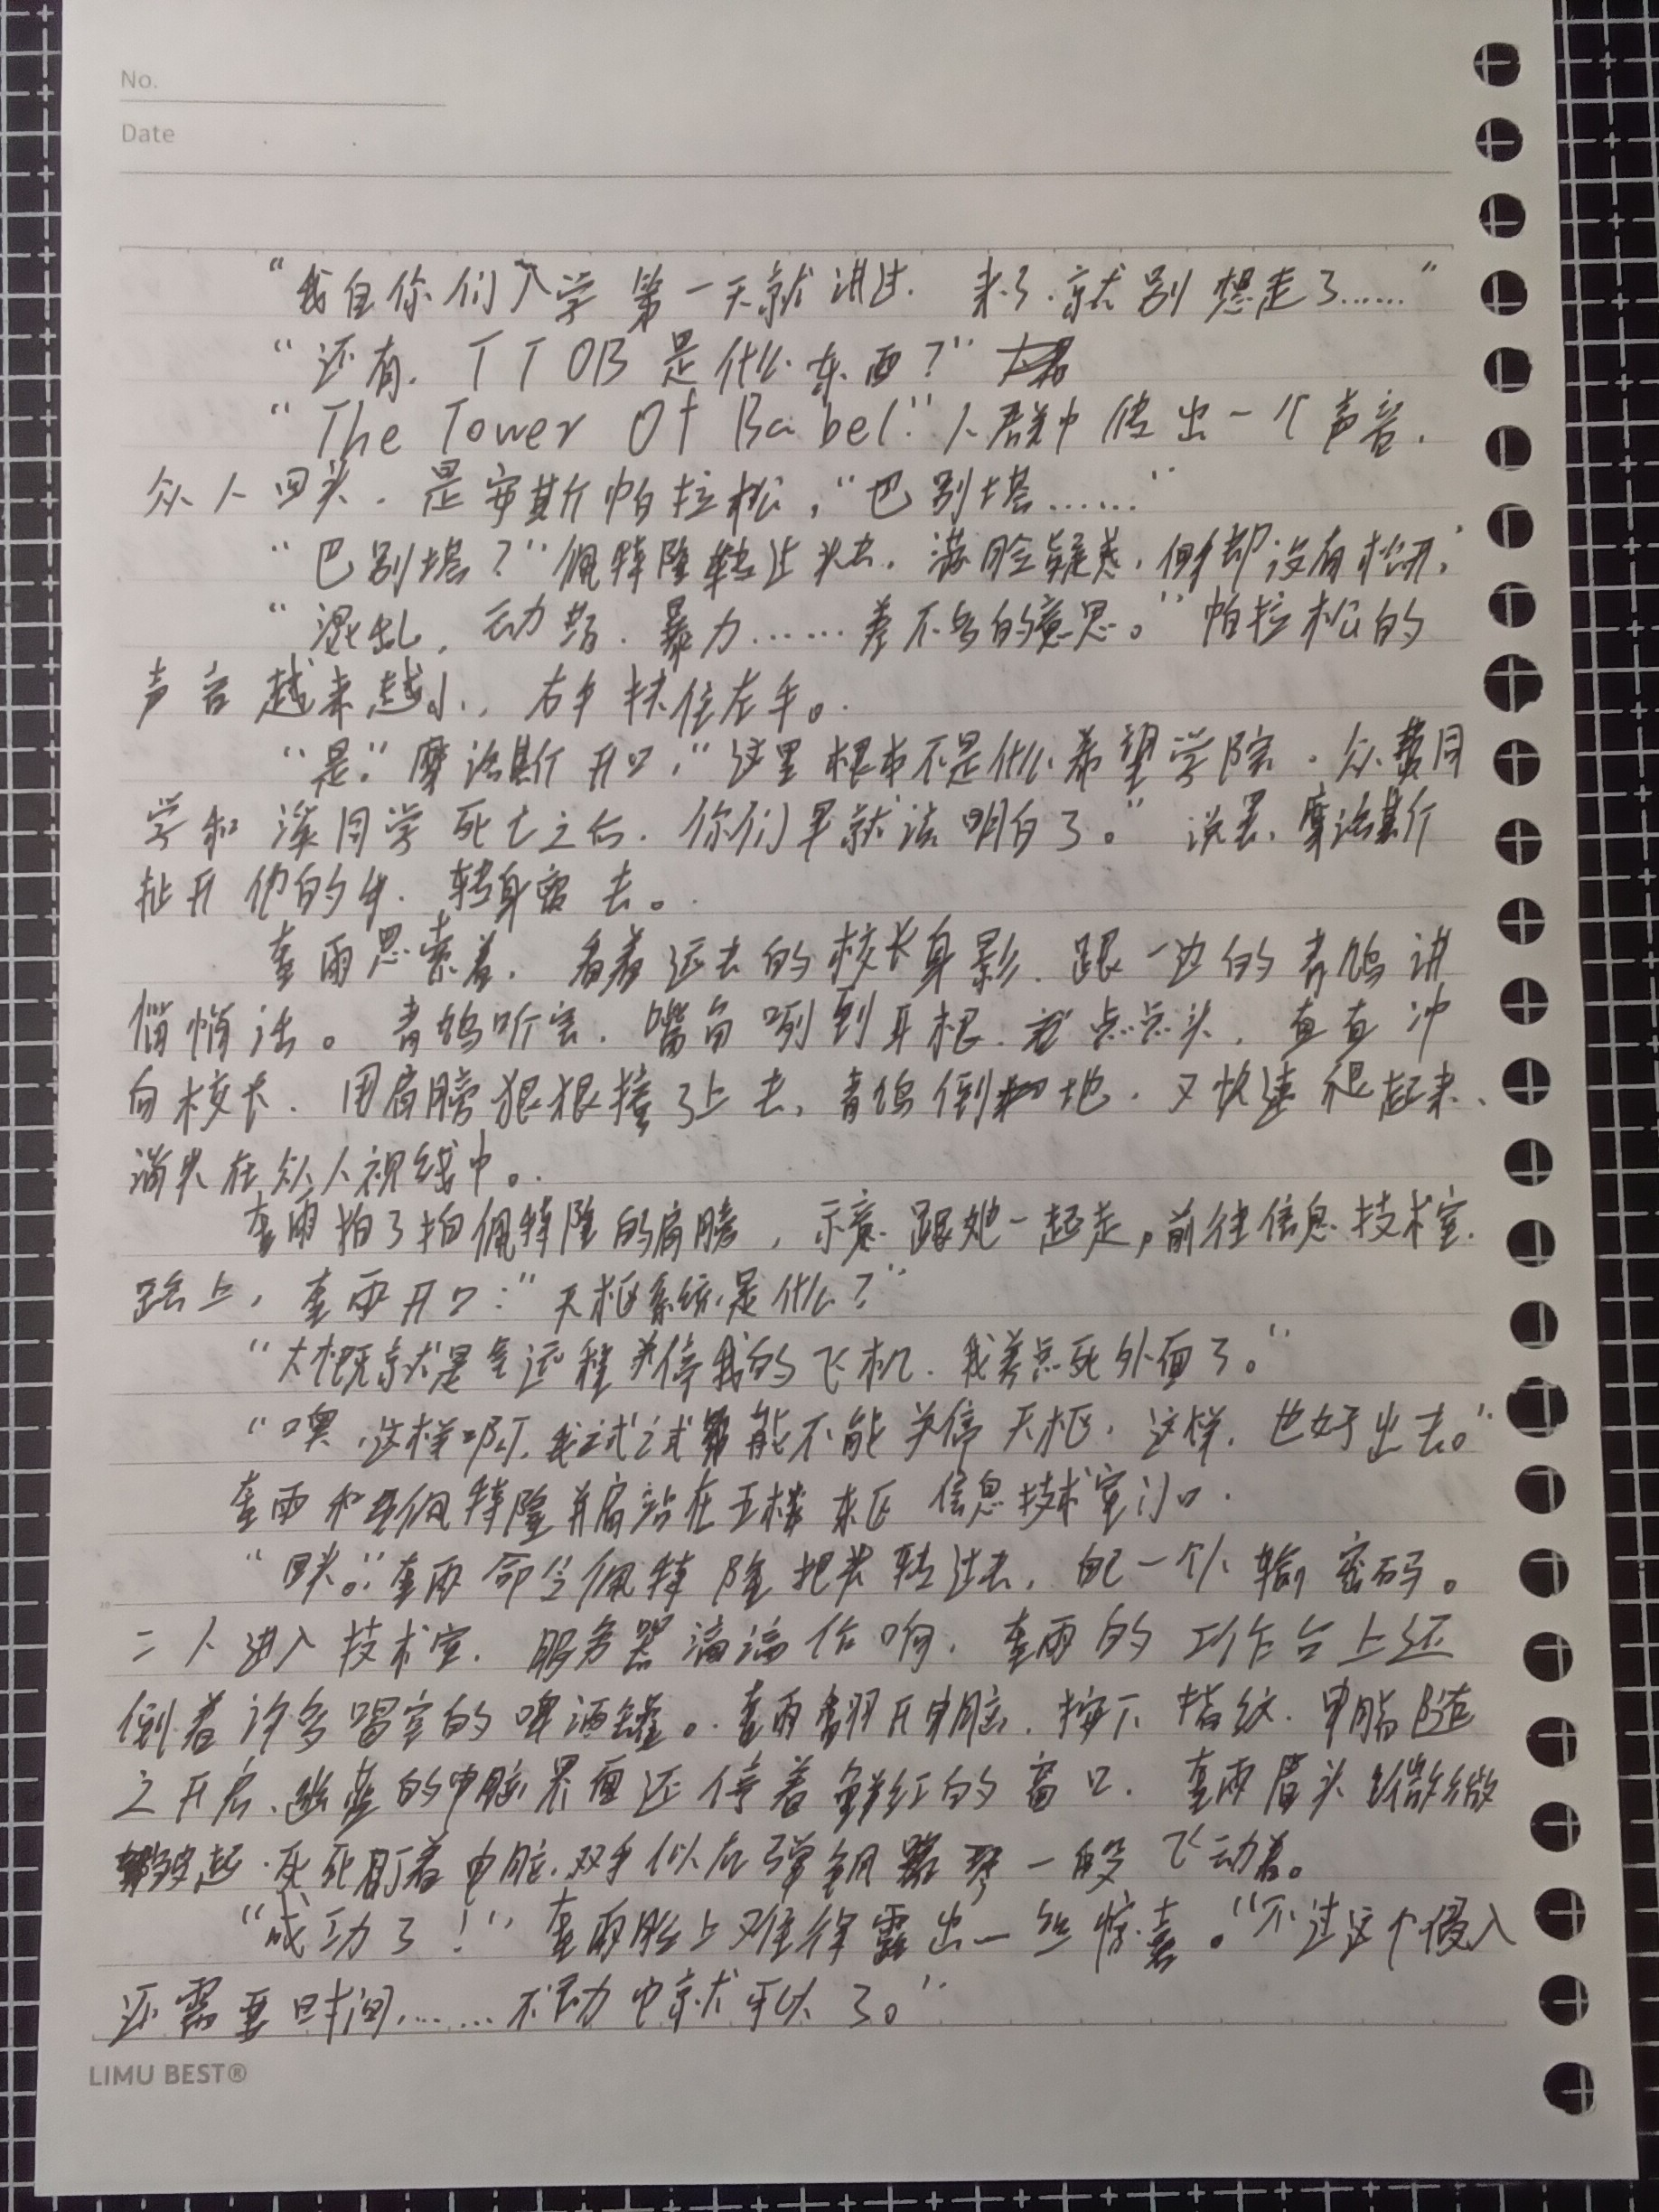 No.
Date
“我自你们入学第一天就讲过.来了.就别想走了……”
“还有.TTOB是什么东西?”
“The Tower Of Babel.”人群中传出一个声音.
众人回头.是安斯帕拉松,“巴别塔……”
“巴别塔?”佩特隆转过头去.满脸疑惑,但手却没有松开.
“混乱,动荡.暴力……差不多的意思。”帕拉松的
声音越来越小,右手扶住左手。
“是.”摩洛斯开口,“这里根本不是什么希望学院.众费同
学和漾同学死亡之后.你们早就该明白了。”说罢,摩洛斯
扯开他的手.转身离去。
奎雨思索着,看着远去的校长身影.跟一边的青鸠讲
悄悄话。青鸠听去.嘴角咧到耳根.点点头,直直冲
向校长.用肩膀狠狠撞了上去,青鸠倒地.又快速爬起来、
消失在众人视线中。
奎雨拍了拍佩特隆的肩膀,示意跟她一起走,前往信息技术室.
路上,奎雨开口:“天枢系统是什么?”
“大概就是负远程关停我的飞机.我差点死外面了。”
“噢,这样啊,我试试能不能关停天枢,这样,也好出去。”
奎雨和佩特隆并肩站在五楼东区信息技术室门口.
“回头。”奎雨命令佩特隆把头转过去,自己一个人输密码。
二人进入技术室.服务器滴滴作响,奎雨的工作台上还
倒着许多喝空的啤酒罐。奎雨翻开电脑,按下指纹.电脑随
之开启、幽蓝的电脑界面还停着鲜红的窗口.奎雨眉头微微
皱起.死死盯着电脑.双手似在弹钢琴一般飞动着。
“成功了!”奎雨脸上难得露出一丝惊喜。“不过这个侵入
还需要时间……不动电就可以了。”
LIMU BEST®